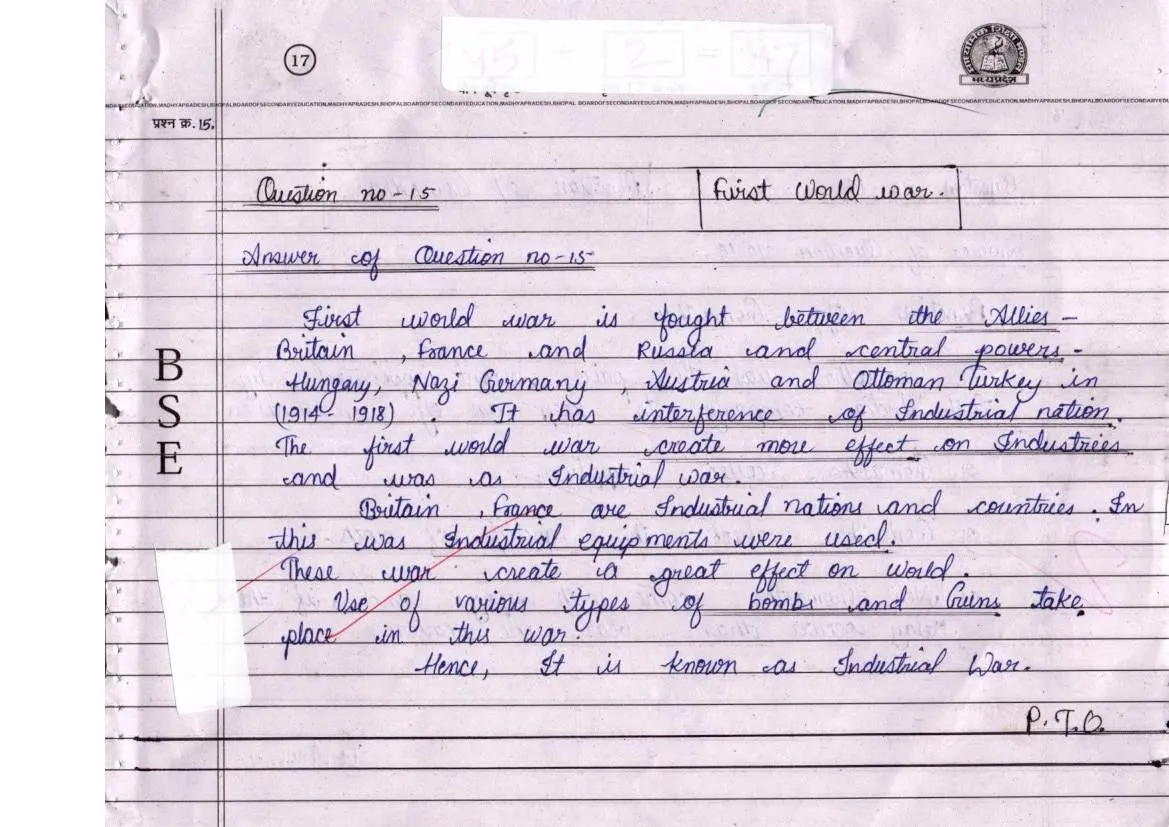 17
45 + 2 = 47
मध्यप्रदेश
BOARDOFSECONDARYEDUCATION,MADHYAPRADESH,BHOPAL BOARDOFSECONDARYEDUCATION,MADHYAPRADESH,BHOPAL
प्रश्न क्र. 15.
Question no - 15
First world war.
Answer of Question no - 15
First world war is fought between the Allies -
Britain , france and Russia and central powers -
Hungary, Nazi Germany , Austria and Ottoman Turkey in
(1914 - 1918) It has interference of Industrial nation.
The first world war create more effect on Industries
and was as Industrial war.
Britain , france are Industrial nations and countries . In
this was Industrial equipments were used.
These war create a great effect on world .
Use of various types of bombs and Guns take
place in this war.
Hence, It is known as Industrial War.
P.T.O.
B
S
E